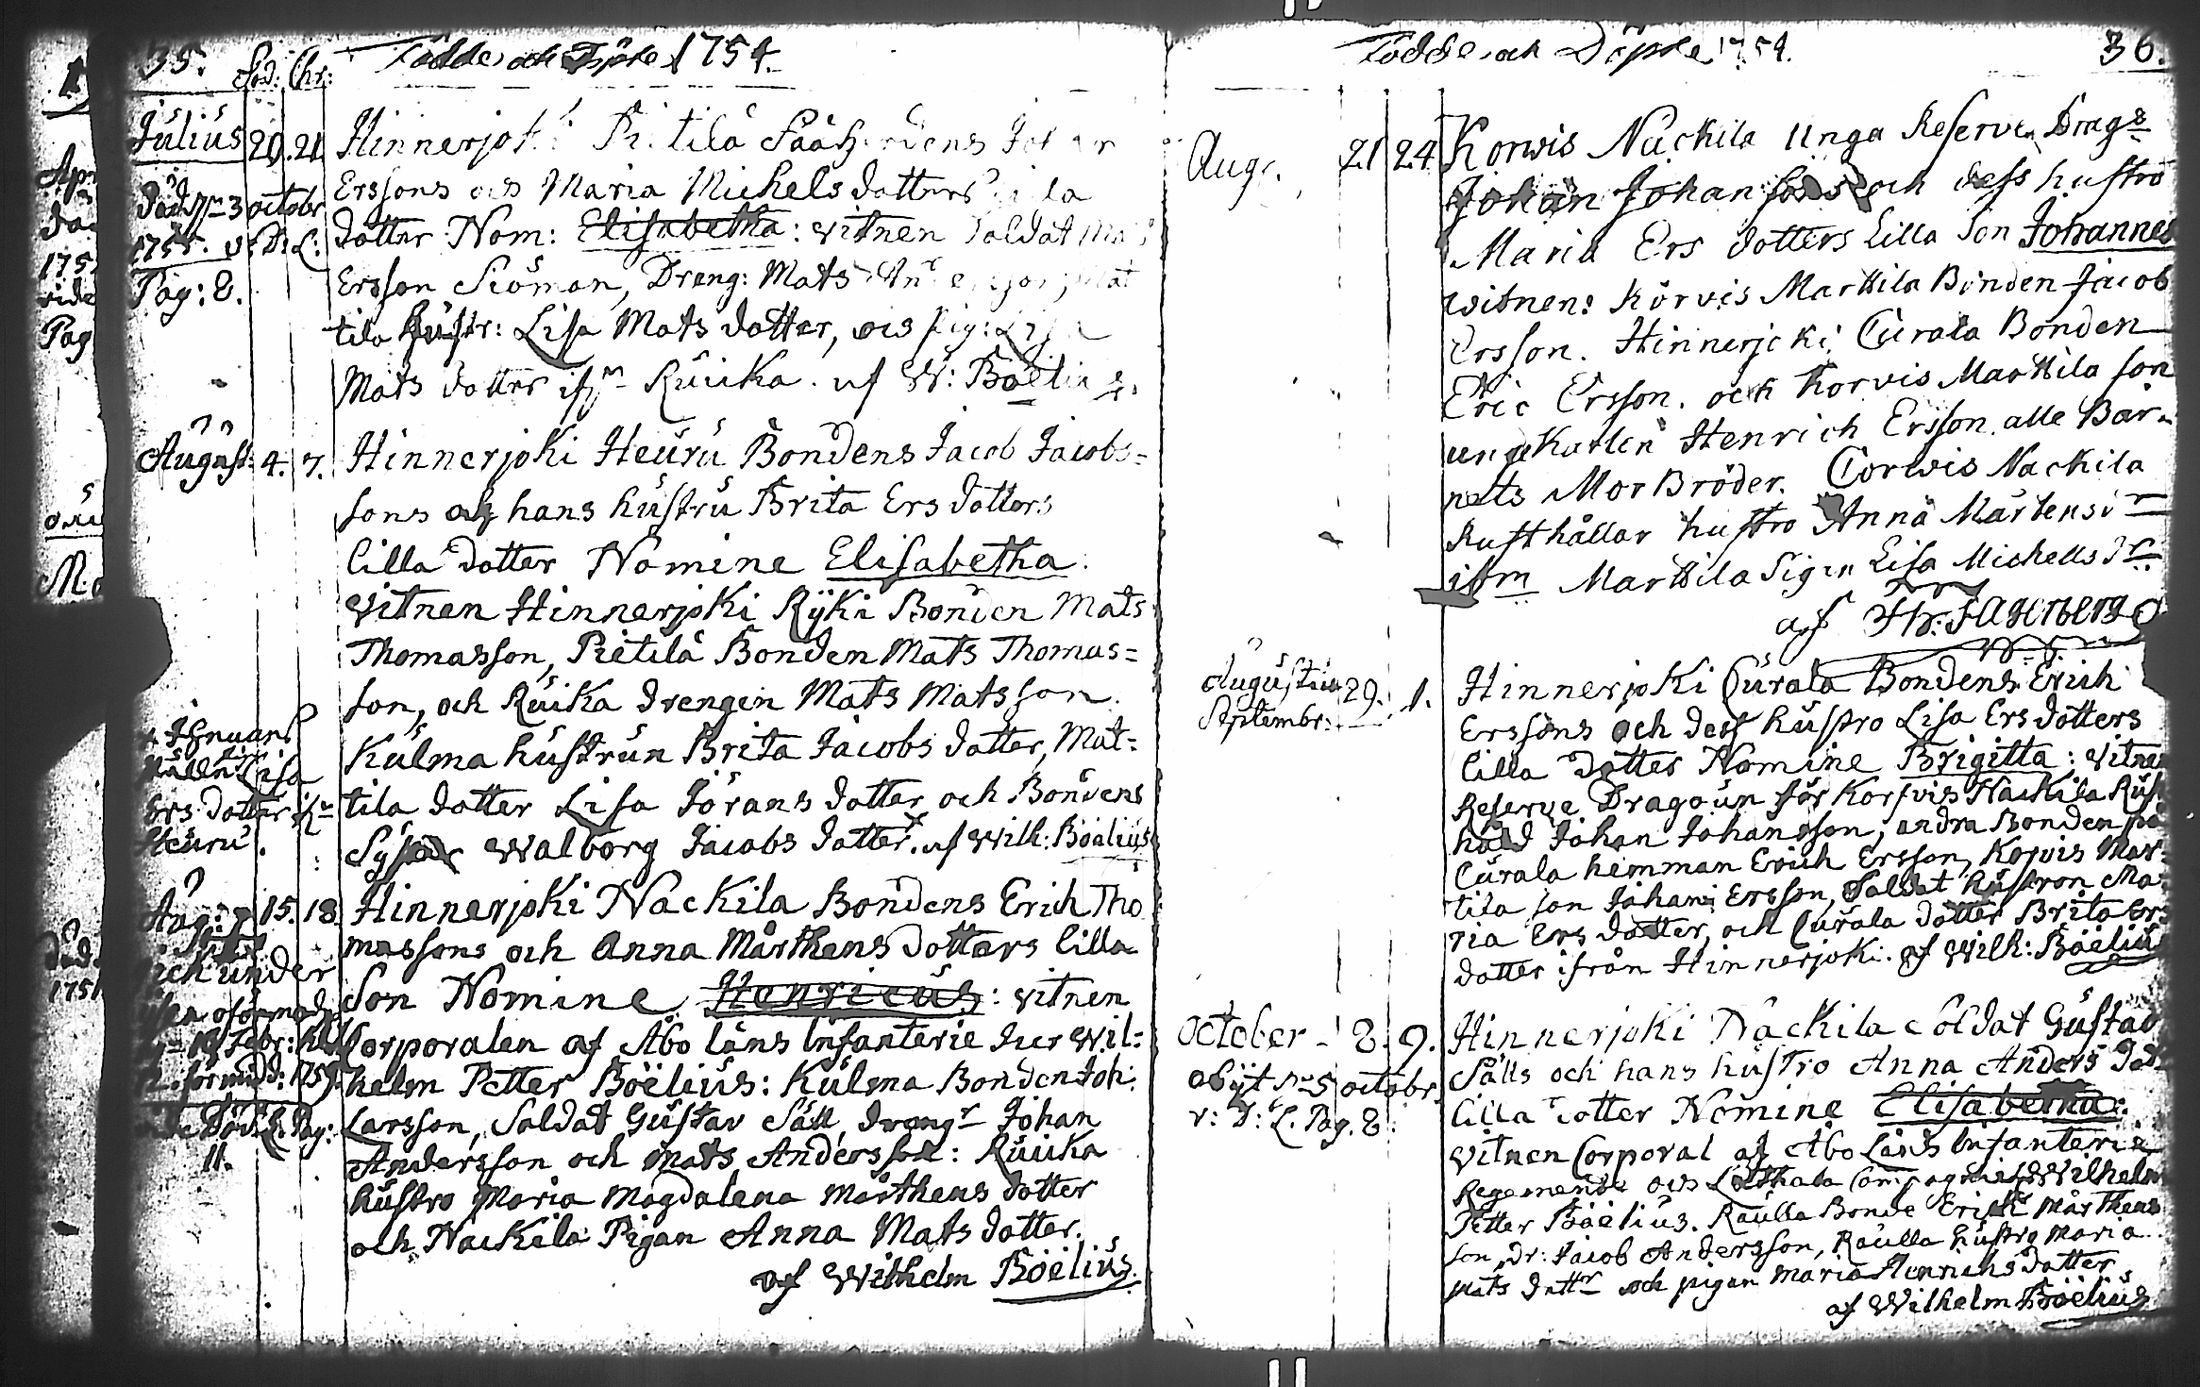 35. Föd: Chr: Födde och Döpte 1754.
Julius 20. 21. Hinnerjoki Pietilä
Erssons och Maria Michels dotters lilla
dotter Nom: Elisabetha: vitnen Soldat Mats
Ersson Siöman, Dreng: Mats
tila hustr: Lisa Mats dotter, och pig: Lisa
Mats dotter ifrn Ruuka. af W: Boëlius.
död dn 3 octobr
1754. v. D: L:
Pag: 8.
August: 4. 7. Hinnerjoki Heuru Bondens Jacob Jacobs=
sons och hans hustru Brita Ers dotters
lilla dotter Nomine Elisabetha.
vitnen Hinnerjoki Ryki Bonden Mats
Thomasson, Pietilä Bonden Mats Thomas=
son, och Ruika drengen Mats Matsson.
Kulma hustrun Brita Jacobs dotter, Mat=
tila dotter Lisa Jörans dotter och Bondens
Syster Walborg Jacobs dotter. af Wilh: Boëlius
Lisa
Ers dotter
Heuru
Aug: 15. 18. Hinnerjoki Nackila Bondens Erich Tho
massons och Anna Mårthens dotters lilla
Son Nomine Henricus: vitnen
Corporalen af Åbo läns Infanterie Herr Wil:
helm Petter Boëlius: Kulma Bonden Joh:
Larsson, Soldat Gustav Säll, drengr Johan
Andersson och Mats Andersson: Ruuka
hustro Maria Magdalena Mårthens dotter
och Nackila Pigan Anna Mats dotter.
af Wilhelm Boëlius.
under
Febr:
1759.
Pag:
11.
Födde och Döpte 1754. 36.
Aug. 21 24 Korvis Nackila Unga Reserve Drag:
Johan Johanssons och dess hustro
Maria Ers dotters lilla Son Johannes
witnen: Korvis Marttila Bonden Jacob
Ersson. Hinnerjoki Curala Bonden
Eric Ersson. och Korvis Marttila son
unga Karlen Henrich Ersson. alle Bar-
nets Mor Bröder. Corvis Nackila
Rusthållar hustro Anna Mårtens dr
ifrn Marttila Pigan Lisa Michells dr
af Hr: Fagerberg
Augustus 29. 1. Hinnerjoki Curala Bondens Erich
Septembr: Erssons och dess hustro Lisa Ers dotters
lilla dotter Nomine Brigitta: vitnen
Reserve Dragoun för Korfvis Nackila Rust
håld Johan Johansson, andra Bonden på
Curala hemman Erich Ersson, Korvis Mar:
tila son Johan Ersson, Soldat hustron Ma:
ria Ers dotter, och Curala dotter Brita Ers
dotter ifrån Hinnerjoki. af Wilh: Boëlius
October - 8. 9. Hinnerjoki Nackila Soldat Gustav
Sälls och hans hustro Anna Anders dot.
lilla dotter Nomine Elisabetha:
vitnen Corporal af Åbo Läns Infanterie
Regemente och Wilhelm
Petter Boëlius. Raulla Bonde Erich Mårthens
son, dr: Jacob Andersson, Raulla hustro Maria
Mats dottr och pigan Maria Henrichs dotter
af Wilhelm Boëlius
obijt dn 5 octobr
v: D: L. Pag. 8.